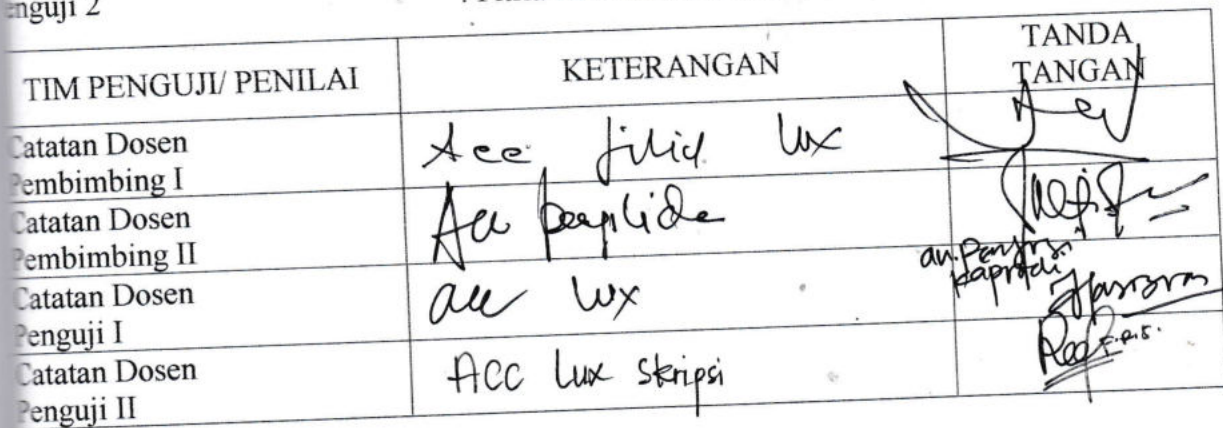 enguji 2
TIM PENGUJI/ PENILAI KETERANGAN TANDA TANGAN
Catatan Dosen Pembimbing I Acc jilid lux
Catatan Dosen Pembimbing II Acc
Catatan Dosen Penguji I acc lux
an. Penguji
Kaprodi
Catatan Dosen Penguji II ACC Lux Skripsi
F.R.S.